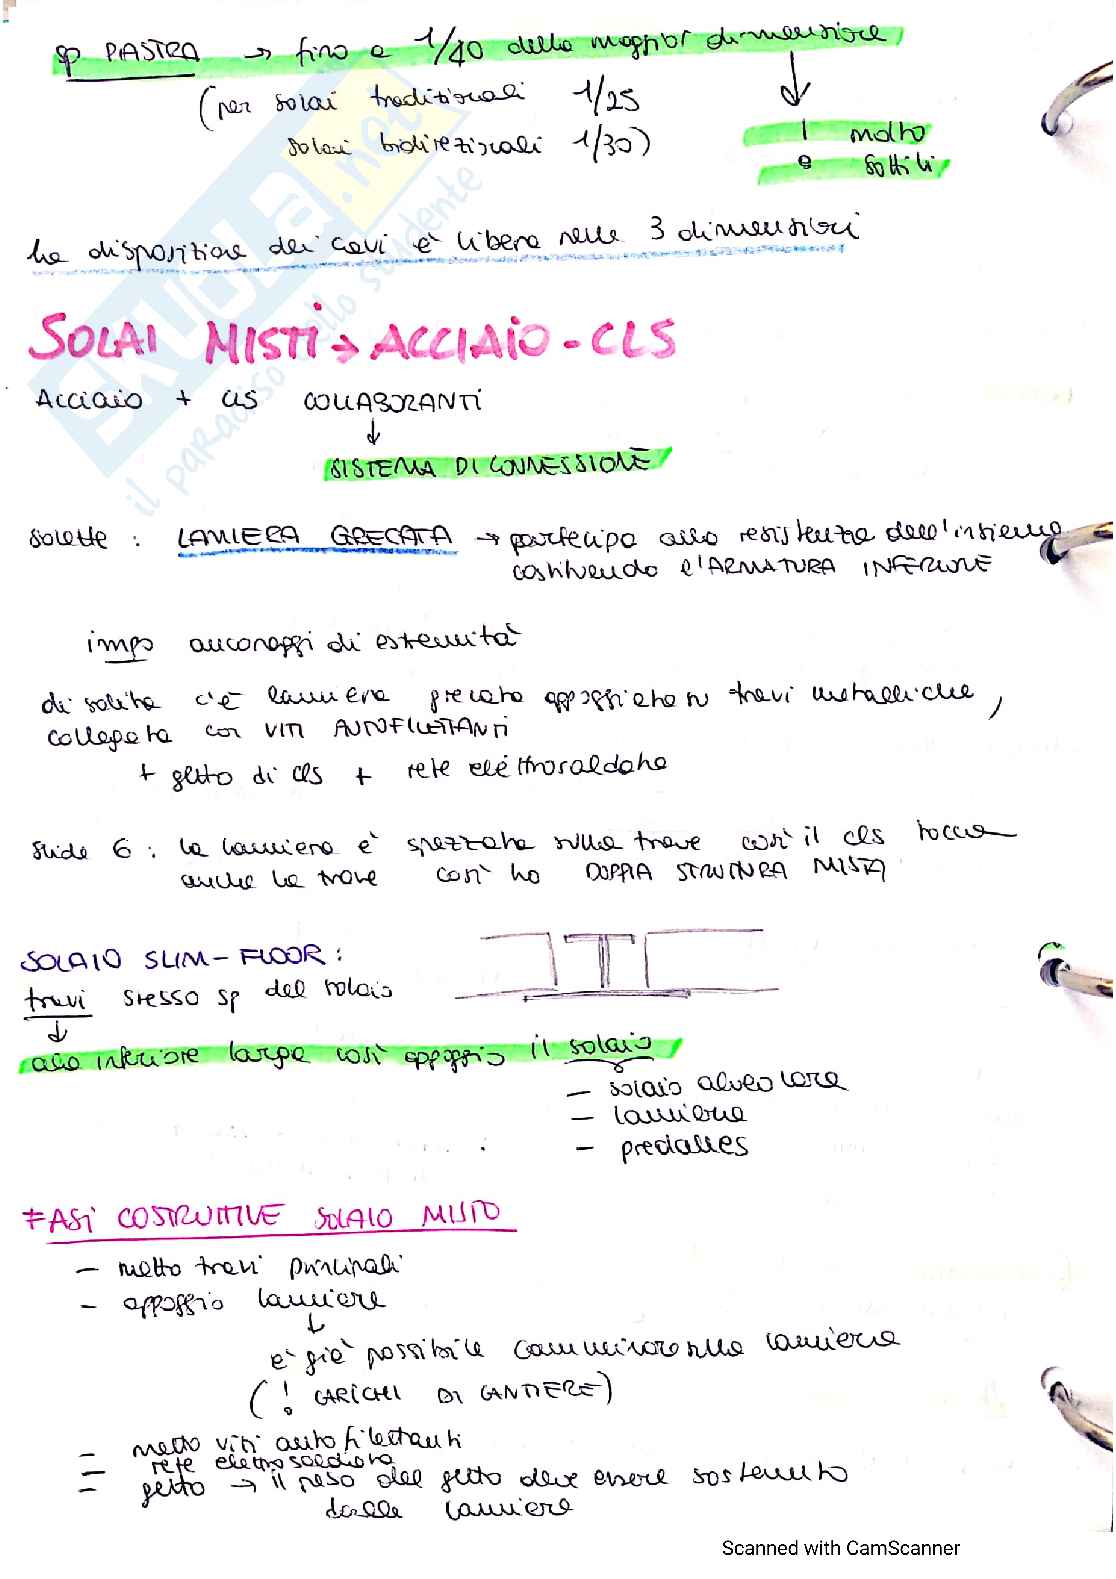 sp PIASTRA → fino a 1/40 della maggior dimensione
(per solai tradizionali 1/25
solai bidirezionali 1/30)
! molto
sottili
la disposizione dei cavi è libera nelle 3 dimensioni
SOLAI MISTI → ACCIAIO - CLS
Acciaio + cls COLLABORANTI
↓
SISTEMA DI CONNESSIONE
solette : LAMIERA GRECATA → partecipa alla resistenza dell'insieme
costituendo l'ARMATURA INFERIORE
imp ancoraggi di estremità
di solito c'è lamiera grecata appoggiata su travi metalliche,
collegata con VITI AUTOFILETTANTI
+ getto di cls + rete elettrosaldata
slide 6 : la lamiera è spezzata sulla trave così il cls tocca
anche la trave così ho DOPPIA STRUTTURA MISTA
SOLAIO SLIM-FLOOR :
travi stesso sp del solaio
↓
ala inferiore larga così appoggio il solaio
- solaio alveolare
- lamiera
- predalles
FASI COSTRUTTIVE SOLAIO MISTO
- metto travi principali
- appoggio lamiere
↓
è già possibile camminare sulla lamiera
(! CARICHI DI CANTIERE)
- metto viti autofilettanti
- rete elettrosaldata
- getto → il peso del getto deve essere sostenuto
dalle lamiere
SKUOLA.net
il paradiso dello studente
Scanned with CamScanner